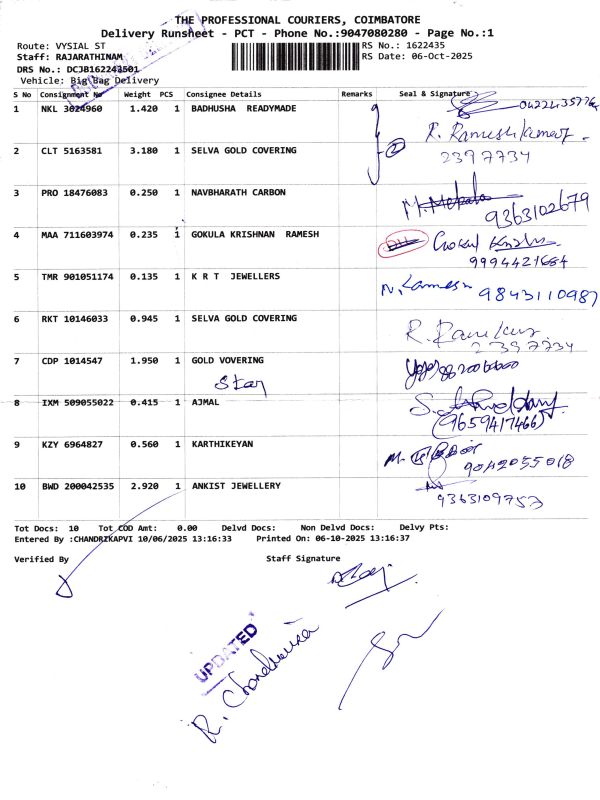 THE PROFESSIONAL COURIERS, COIMBATORE
Delivery Runsheet - PCT - Phone No.:9047080280 - Page No.:1
Route: VYSIAL ST RS No.: 1622435
Staff: RAJARATHINAM RS Date: 06-Oct-2025
DRS No.: DCJB162243501
Vehicle: Big Bag Delivery
S No Consignment No Weight PCS Consignee Details Remarks Seal & Signature
1 NKL 3024960 1.420 1 BADHUSHA READYMADE
R. Rameshkumar
2 CLT 5163581 3.180 1 SELVA GOLD COVERING 2 2397734
3 PRO 18476083 0.250 1 NAVBHARATH CARBON M. Mekala
9363102679
4 MAA 711603974 0.235 1 GOKULA KRISHNAN RAMESH
9994421684
5 TMR 901051174 0.135 1 K R T JEWELLERS 9843110987
6 RKT 10146033 0.945 1 SELVA GOLD COVERING
2397734
7 CDP 1014547 1.950 1 GOLD VOVERING
Star
8 IXM 509055022 0.415 1 AJMAL
(9659417466)
9 KZY 6964827 0.560 1 KARTHIKEYAN
9042055018
10 BWD 200042535 2.920 1 ANKIST JEWELLERY
9363109753
Tot Docs: 10 Tot COD Amt: 0.00 Delvd Docs: Non Delvd Docs: Delvy Pts:
Entered By :CHANDRIKAPVI 10/06/2025 13:16:33 Printed On: 06-10-2025 13:16:37
Verified By Staff Signature
UPDATED